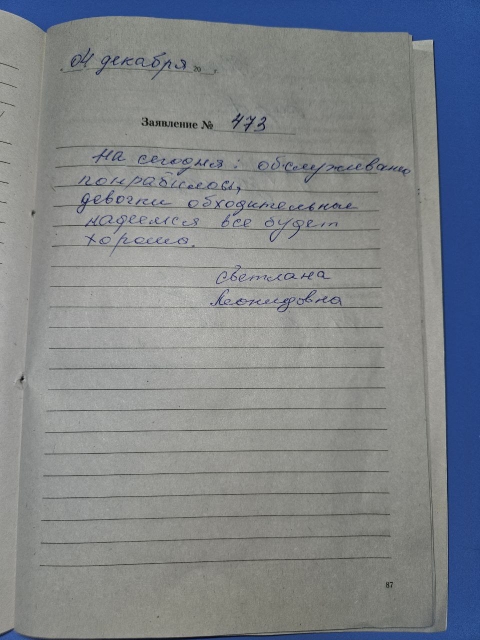 04 декабря 20 г.
Заявление № 473
На сегодня: обслуживание
понравилось,
девочки обходительные
надеемся все будет
хорошо.
Светлана
Леонидовна
87